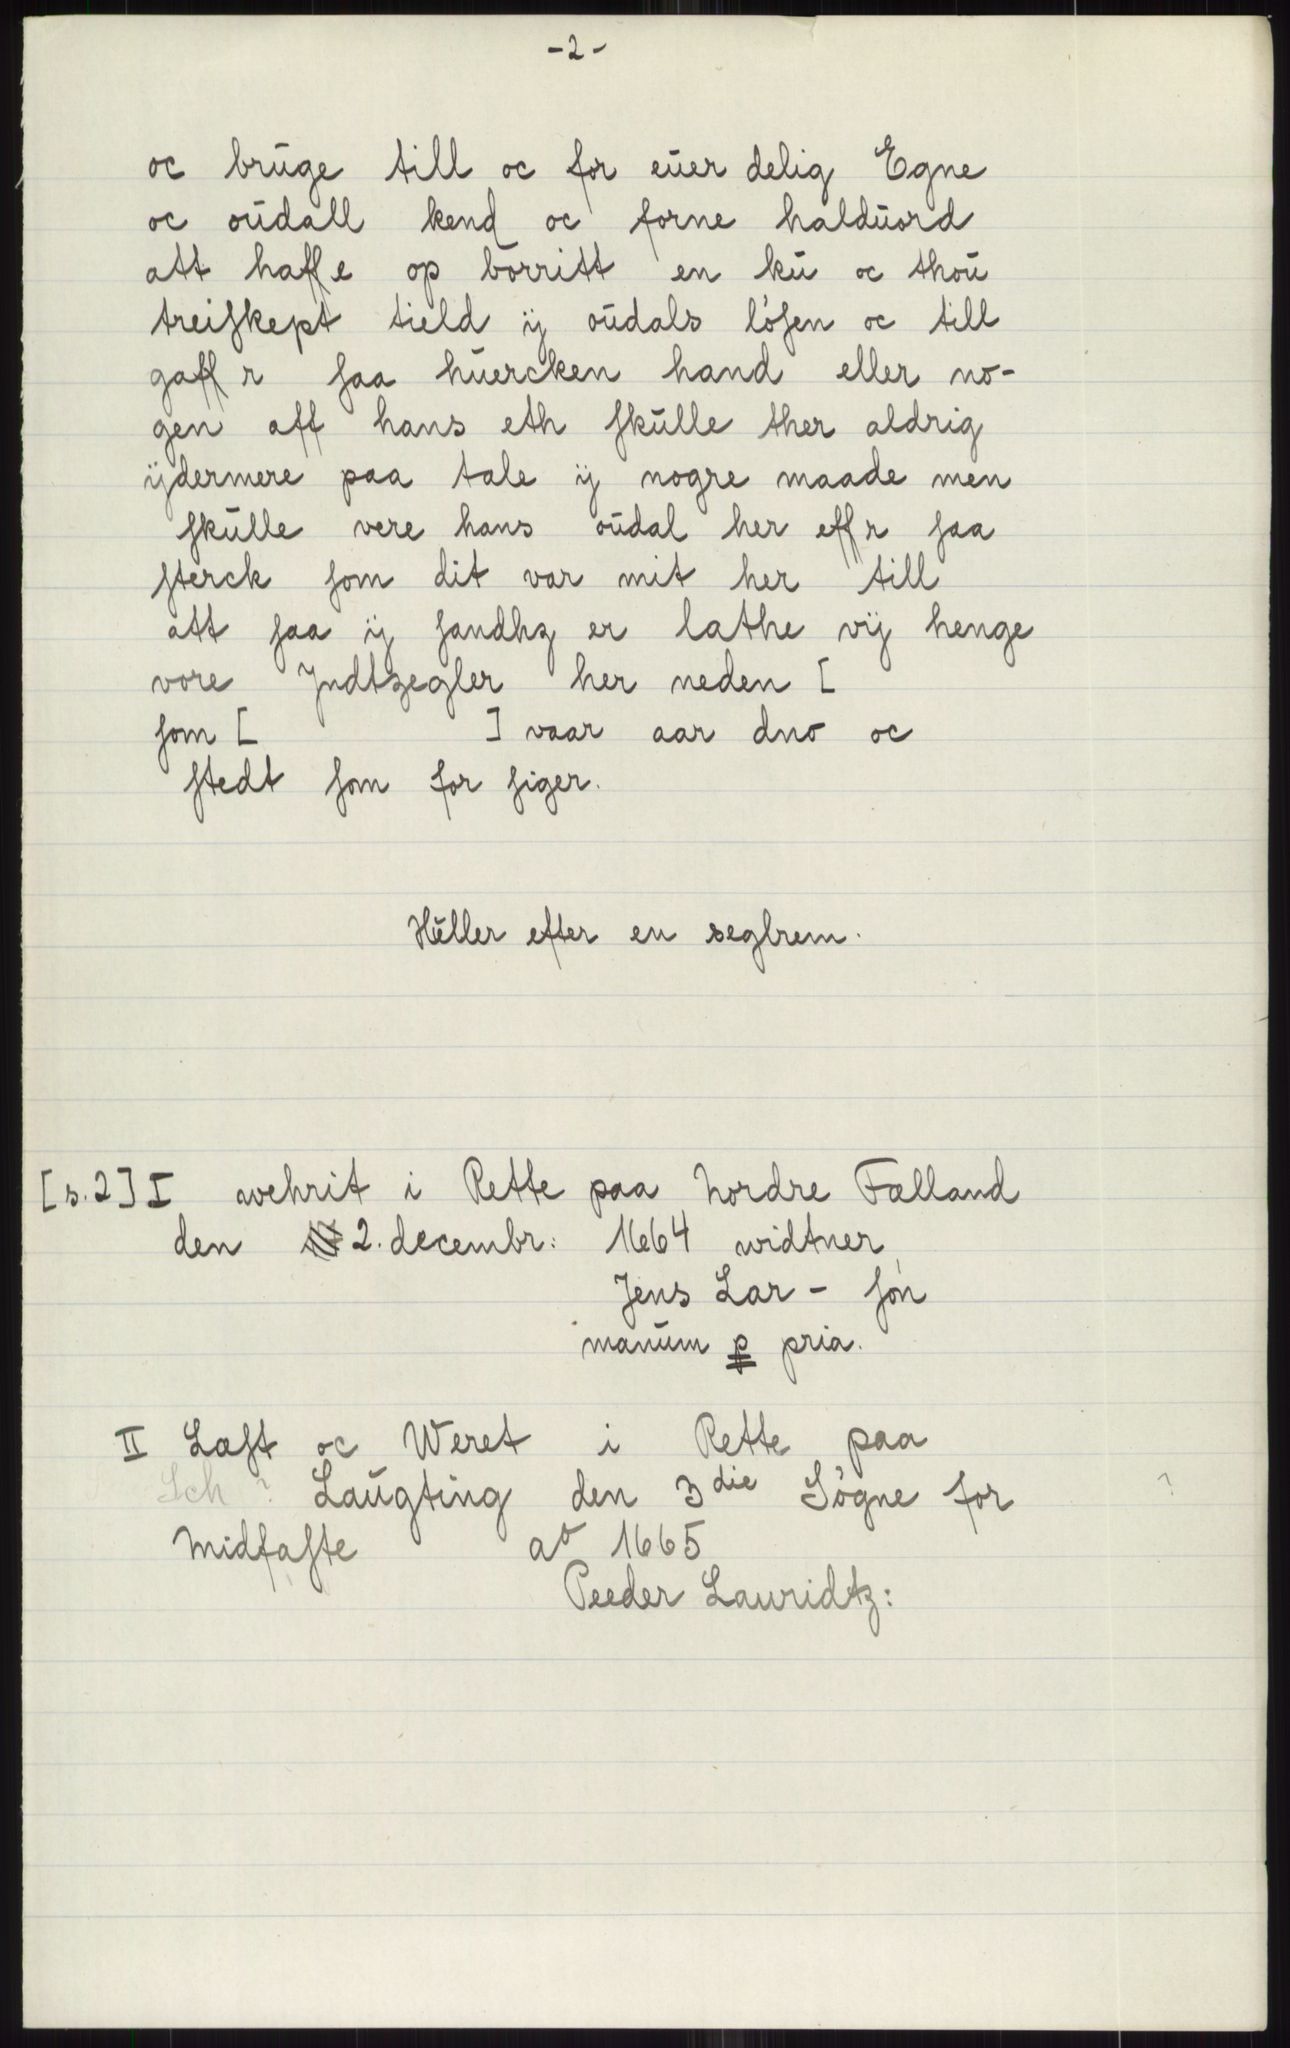 -2-
oc brūge till oc for eūer delig Egne
oc oūdall kend oc forne haldūord
att haffe op borritt en kū oc thoū
treiskept tield ij oūdals lösen oc till
gaff r saa hūercken hand eller no-
gen aff hans eth skūlle ther aldrig
ijdermere paa tale ij nogre maade men
skūlle vere hans oūdal her eff r saa
sterck som dit var mit her till
att saa ij sandhz er lathe vij henge
vore Jndtzegler her neden [
som [ ] vaar aar dno oc
stedt som for siger.
Hūller efter en seglrem.
[s.2] I wehrit i Rette paa Nordre Fælland
den 2. decembr: 1664 widtner
Jens Lar - søn
manūm p pria.
II Læst oc Weret i Rette paa
Sch ? Laūgting den 3die Søgne for ?
Midfaste ao 1665
Peeder Lauridtz: